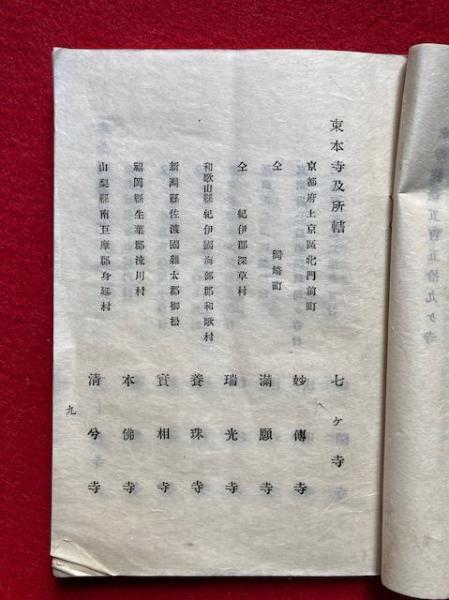 東本寺及所轄 七ヶ寺
京都府上京區北門前町 妙傳寺
仝 岡崎町 滿願寺
仝 紀伊郡深草村 瑞光寺
和歌山縣紀伊國海部郡和歌村 養珠寺
新潟縣佐渡國雜太郡御松 實相寺
福岡縣生葉郡流川村 本佛寺
山梨縣南巨摩郡身延村 清兮寺
九